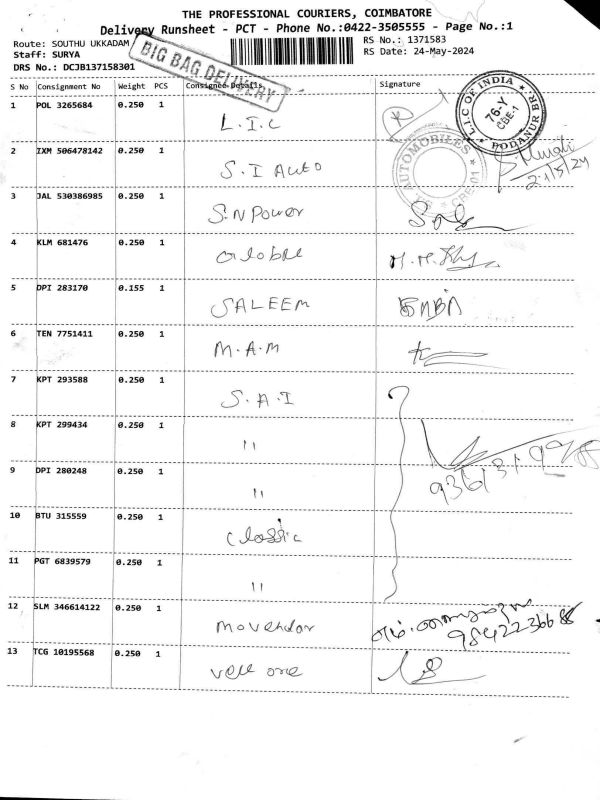 THE PROFESSIONAL COURIERS, COIMBATORE
Delivery Runsheet - PCT - Phone No.:0422-3505555 - Page No.:1
Route: SOUTHU UKKADAM
RS No.: 1371583
Staff: SURYA
RS Date: 24-May-2024
DRS No.: DCJB137158301
BIG BAG DELIVERY
S No Consignment No Weight PCS Consignee Details Signature
1 POL 3265684 0.250 1 L.I.C
L.I.C OF INDIA
76-Y
CBE-1
PODANUR BR
AUTOMOBILES
CBE-01
2 IXM 506478142 0.250 1 S.I Auto
3 JAL 530386985 0.250 1 S.N Power
4 KLM 681476 0.250 1
5 DPI 283170 0.155 1 SALEEM
6 TEN 7751411 0.250 1 M.A.M
7 KPT 293588 0.250 1 S.A.I
8 KPT 299434 0.250 1 "
9 DPI 280248 0.250 1 "
10 BTU 315559 0.250 1 Classic
11 PGT 6839579 0.250 1 "
12 SLM 346614122 0.250 1 Movendar
13 TCG 10195568 0.250 1